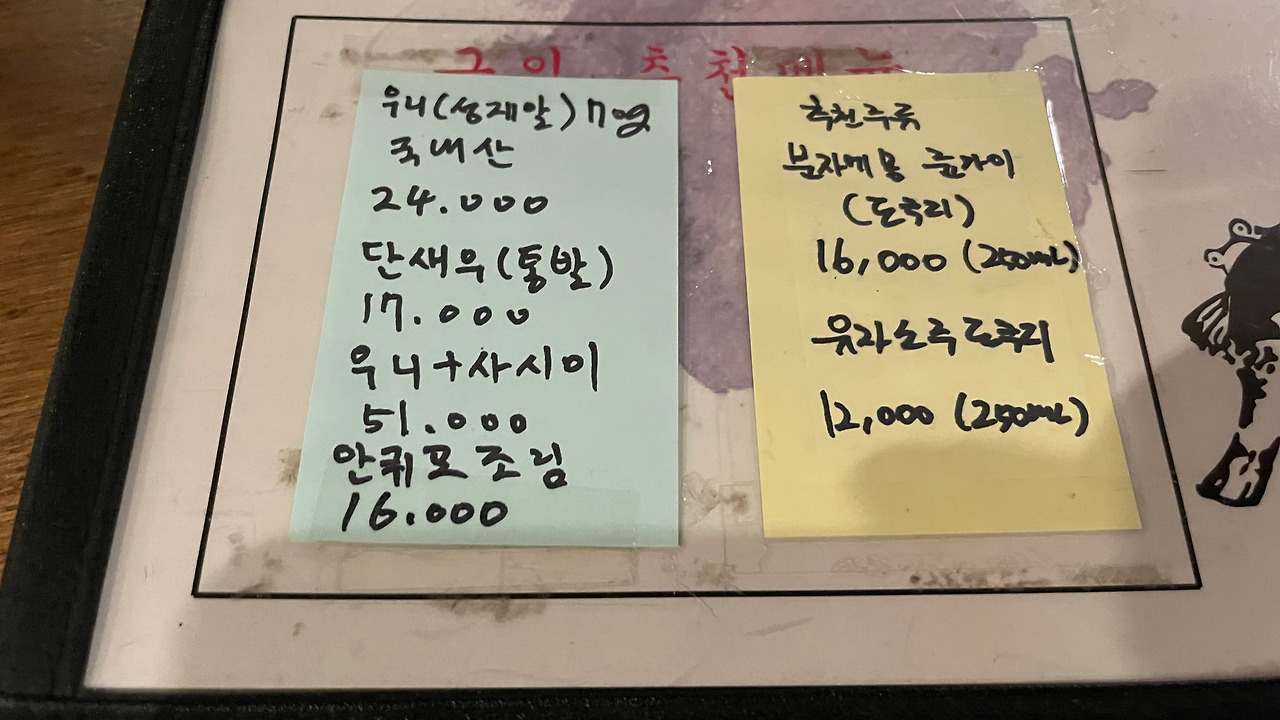 추천메뉴
우니(성게알) 7opt
국내산
24.000
단새우(통발)
17.000
우니+사시미
51.000
안퀴모조림
16.000
추천주류
분자메용 준가이
(도쿠리)
16,000 (250mL)
유라소주도쿠리
12,000 (250mL)